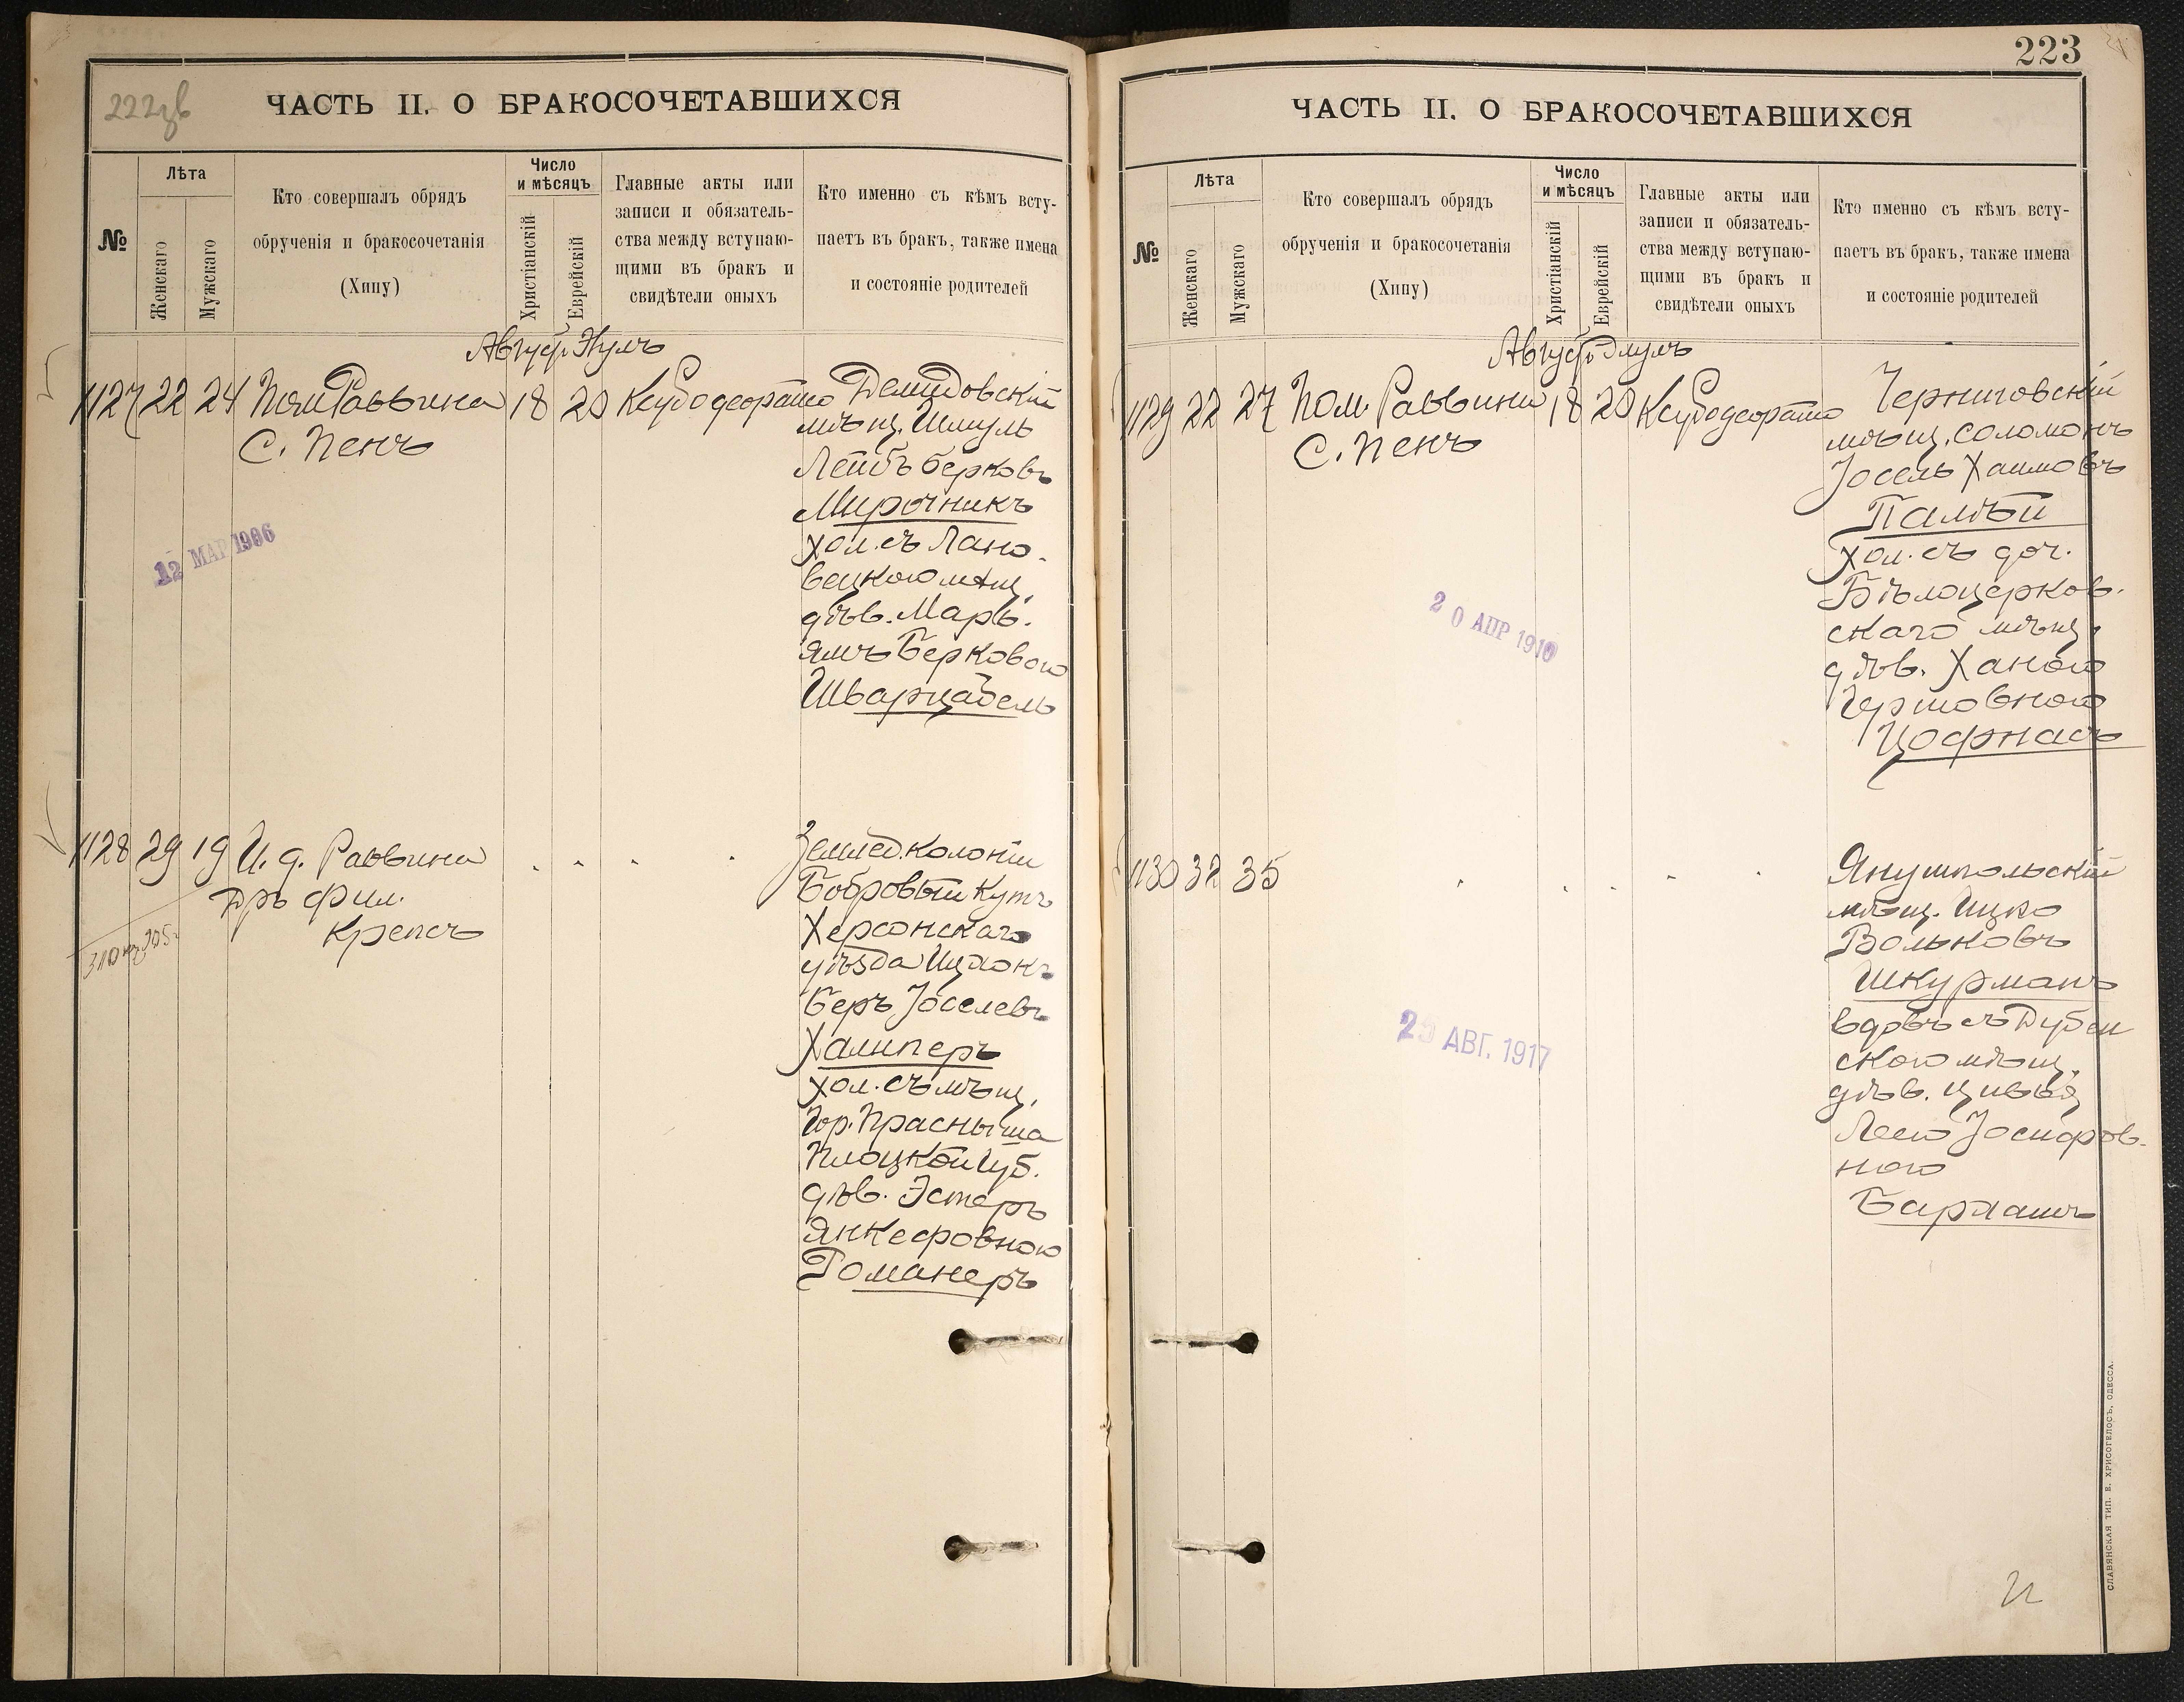 222зв
ЧАСТЬ II. О БРАКОСОЧЕТАВШИХСЯ
№
Лѣта
Женскаго
Мужскаго
Кто совершалъ обрядъ
обрученія и бракосочетанія
(Хипу)
Число
и мѣсяцъ
Христіанскій
Еврейскій
Главные акты или
записи и обязатель-
ства между вступаю-
щими въ бракъ и
свидѣтели оныхъ
Кто именно съ кѣмъ всту-
паетъ въ бракъ, также имена
и состояніе родителей
Август. Элулъ
1127 22 24 Пом. Раввина 18 20 Ксубо деорайто Демидовскій
С. Пенъ
мѣщ. Шмуль
Лейбъ Берковъ
Мирочникъ
хол. съ Лано-
вецкою мѣщ.
дѣв. Марь-
ямъ Берковою
Шварцабель
12 МАР 1906
1128 29 19 И. д. Раввина
Дръ Фил.
Крепсъ
Землед. колоніи
Бобровый Кутъ
Херсонскаго
уѣзда Ицхокъ
Беръ Іоселевъ
Хаимперъ
хол. съ мѣщ.
гор. Прасныша
Плоцкой губ.
дѣв. Эстеръ
Янкефовною
Романеръ
223
ЧАСТЬ II. О БРАКОСОЧЕТАВШИХСЯ
№
Лѣта
Женскаго
Мужскаго
Кто совершалъ обрядъ
обрученія и бракосочетанія
(Хипу)
Число
и мѣсяцъ
Христіанскій
Еврейскій
Главные акты или
записи и обязатель-
ства между вступаю-
щими въ бракъ и
свидѣтели оныхъ
Кто именно съ кѣмъ всту-
паетъ въ бракъ, также имена
и состояніе родителей
Август. Элулъ
1129 22 27 Пом. Раввина 18 20 Ксубо деорайто Черниговскій
С. Пенъ
мѣщ. Соломонъ
Іосель Хаимовъ
Палѣй
хол. съ доч.
Бѣлоцерков-
скаго мѣщ.
дѣв. Ханою
Гершовною
Цофнасъ
20 АПР 1910
1130 32 35
Янушпольскій
мѣщ. Ицко
Вольковъ
Шкурманъ
вдовъ съ Дубен
скою мѣщ.
дѣв. Цивья
Леею Іосифов-
ною
Барлашъ
АВГ. 1917
СЛАВЯНСКАЯ ТИП. Е. ХРИСОГЕЛОСЪ, ОДЕССА.